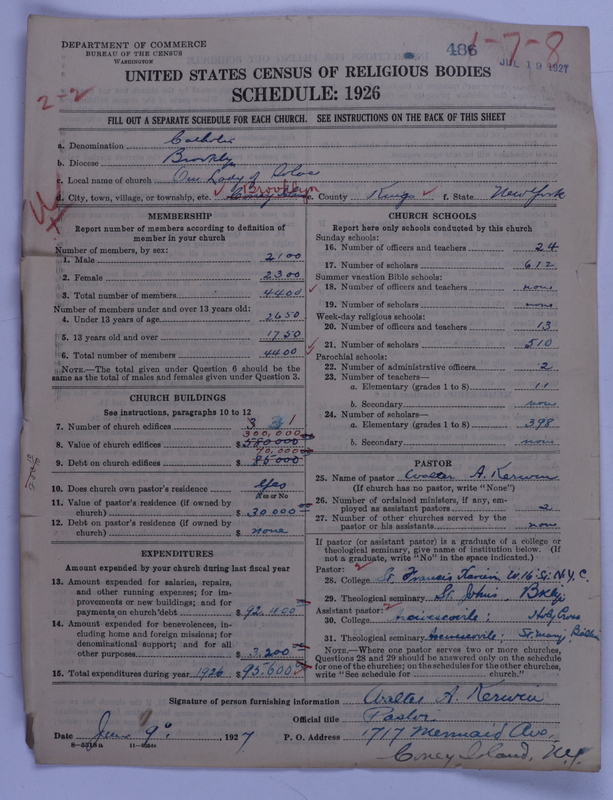 DEPARTMENT OF COMMERCE
BUREAU OF THE CENSUS
WASHINGTON
486
1-7-8
JUL 19 1927
2-2
UNITED STATES CENSUS OF RELIGIOUS BODIES
SCHEDULE: 1926
FILL OUT A SEPARATE SCHEDULE FOR EACH CHURCH. SEE INSTRUCTIONS ON THE BACK OF THIS SHEET
a. Denomination Catholic
b. Diocese Brooklyn
c. Local name of church Our Lady of Solace
d. City, town, village, or township, etc. Brooklyn e. County Kings f. State New York
MEMBERSHIP
Report number of members according to definition of
member in your church
Number of members, by sex:
1. Male 2100
2. Female 2300
3. Total number of members 4400
Number of members under and over 13 years old:
4. Under 13 years of age 2650
5. 13 years old and over 1750
6. Total number of members 4400
NOTE.—The total given under Question 6 should be the
same as the total of males and females given under Question 3.
CHURCH BUILDINGS
See instructions, paragraphs 10 to 12
7. Number of church edifices 3 1
300,000
8. Value of church edifices $ 580000
70,000
9. Debt on church edifices $ 85000
10. Does church own pastor's residence Yes
Yes or No
11. Value of pastor's residence (if owned by
church) $ 30000
12. Debt on pastor's residence (if owned by
church) $ none
EXPENDITURES
Amount expended by your church during last fiscal year
13. Amount expended for salaries, repairs,
and other running expenses; for im-
provements or new buildings; and for
payments on church debt $ 92,400
14. Amount expended for benevolences, in-
cluding home and foreign missions; for
denominational support; and for all
other purposes $ 3,200
15. Total expenditures during year 1926 $ 95,600
CHURCH SCHOOLS
Report here only schools conducted by this church
Sunday schools:
16. Number of officers and teachers 24
17. Number of scholars 612
Summer vacation Bible schools:
18. Number of officers and teachers none
19. Number of scholars none
Week-day religious schools:
20. Number of officers and teachers 13
21. Number of scholars 510
Parochial schools:
22. Number of administrative officers 2
23. Number of teachers—
a. Elementary (grades 1 to 8) 11
b. Secondary none
24. Number of scholars—
a. Elementary (grades 1 to 8) 398
b. Secondary none
PASTOR
25. Name of pastor Walter A. Kerwin
(If church has no pastor, write "None")
26. Number of ordained ministers, if any, em-
ployed as assistant pastors 2
27. Number of other churches served by the
pastor or his assistants none
If pastor (or assistant pastor) is a graduate of a college or
theological seminary, give name of institution below. (If
not a graduate, write "No" in the space indicated.)
Pastor:
28. College St. Francis Xavier, W. 16 St. N.Y.C.
29. Theological seminary St. John's, Bklyn
Assistant pastor:
30. College ; Holy Cross
31. Theological seminary ; St. Mary,
NOTE.—Where one pastor serves two or more churches,
Questions 28 and 29 should be answered only on the schedule
for one of the churches; on the schedules for the other churches,
write "See schedule for church."
Signature of person furnishing information Walter A. Kerwin
Official title Pastor
Date 9 1927 P. O. Address 1717 Mermaid Ave.
8—5318a
Coney Island, N.Y.